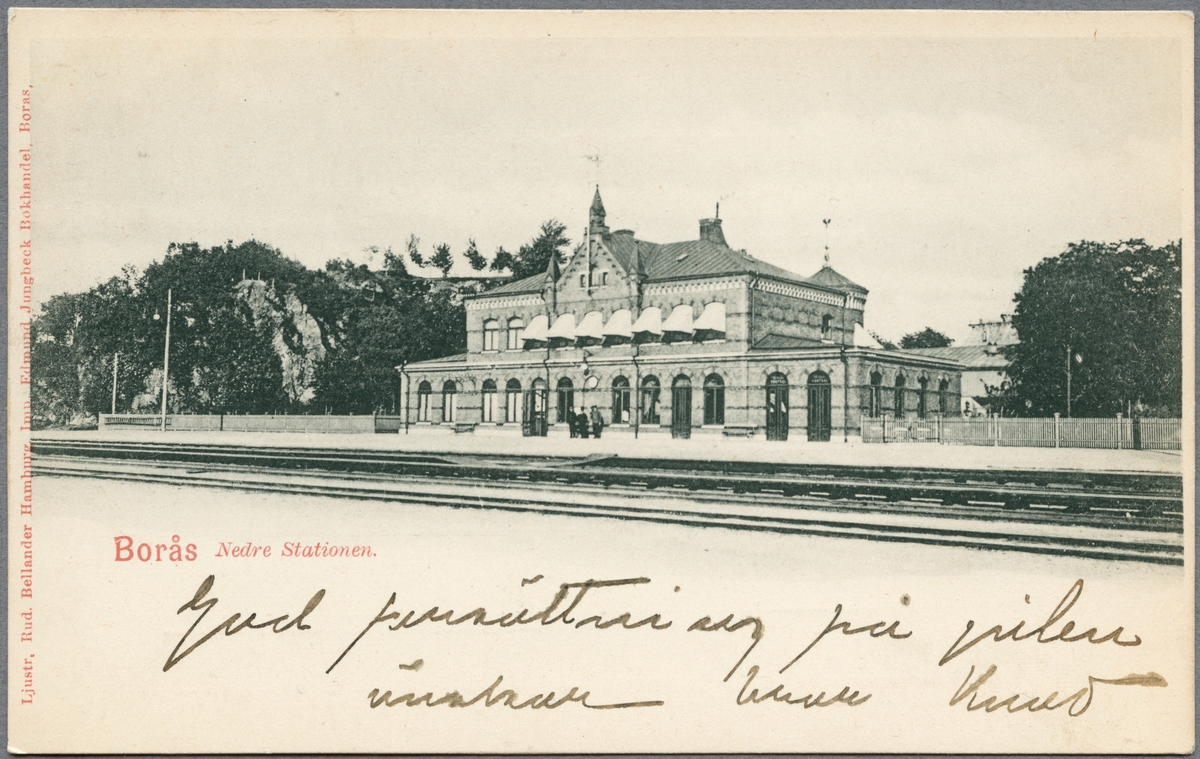 Ljustr. Rud. Bellander Hamburg, Inn. Edmund Jungbeck Bokhandel, Boras,
Borås Nedre Stationen.
God fortsättning på julen
önskar bror Knut